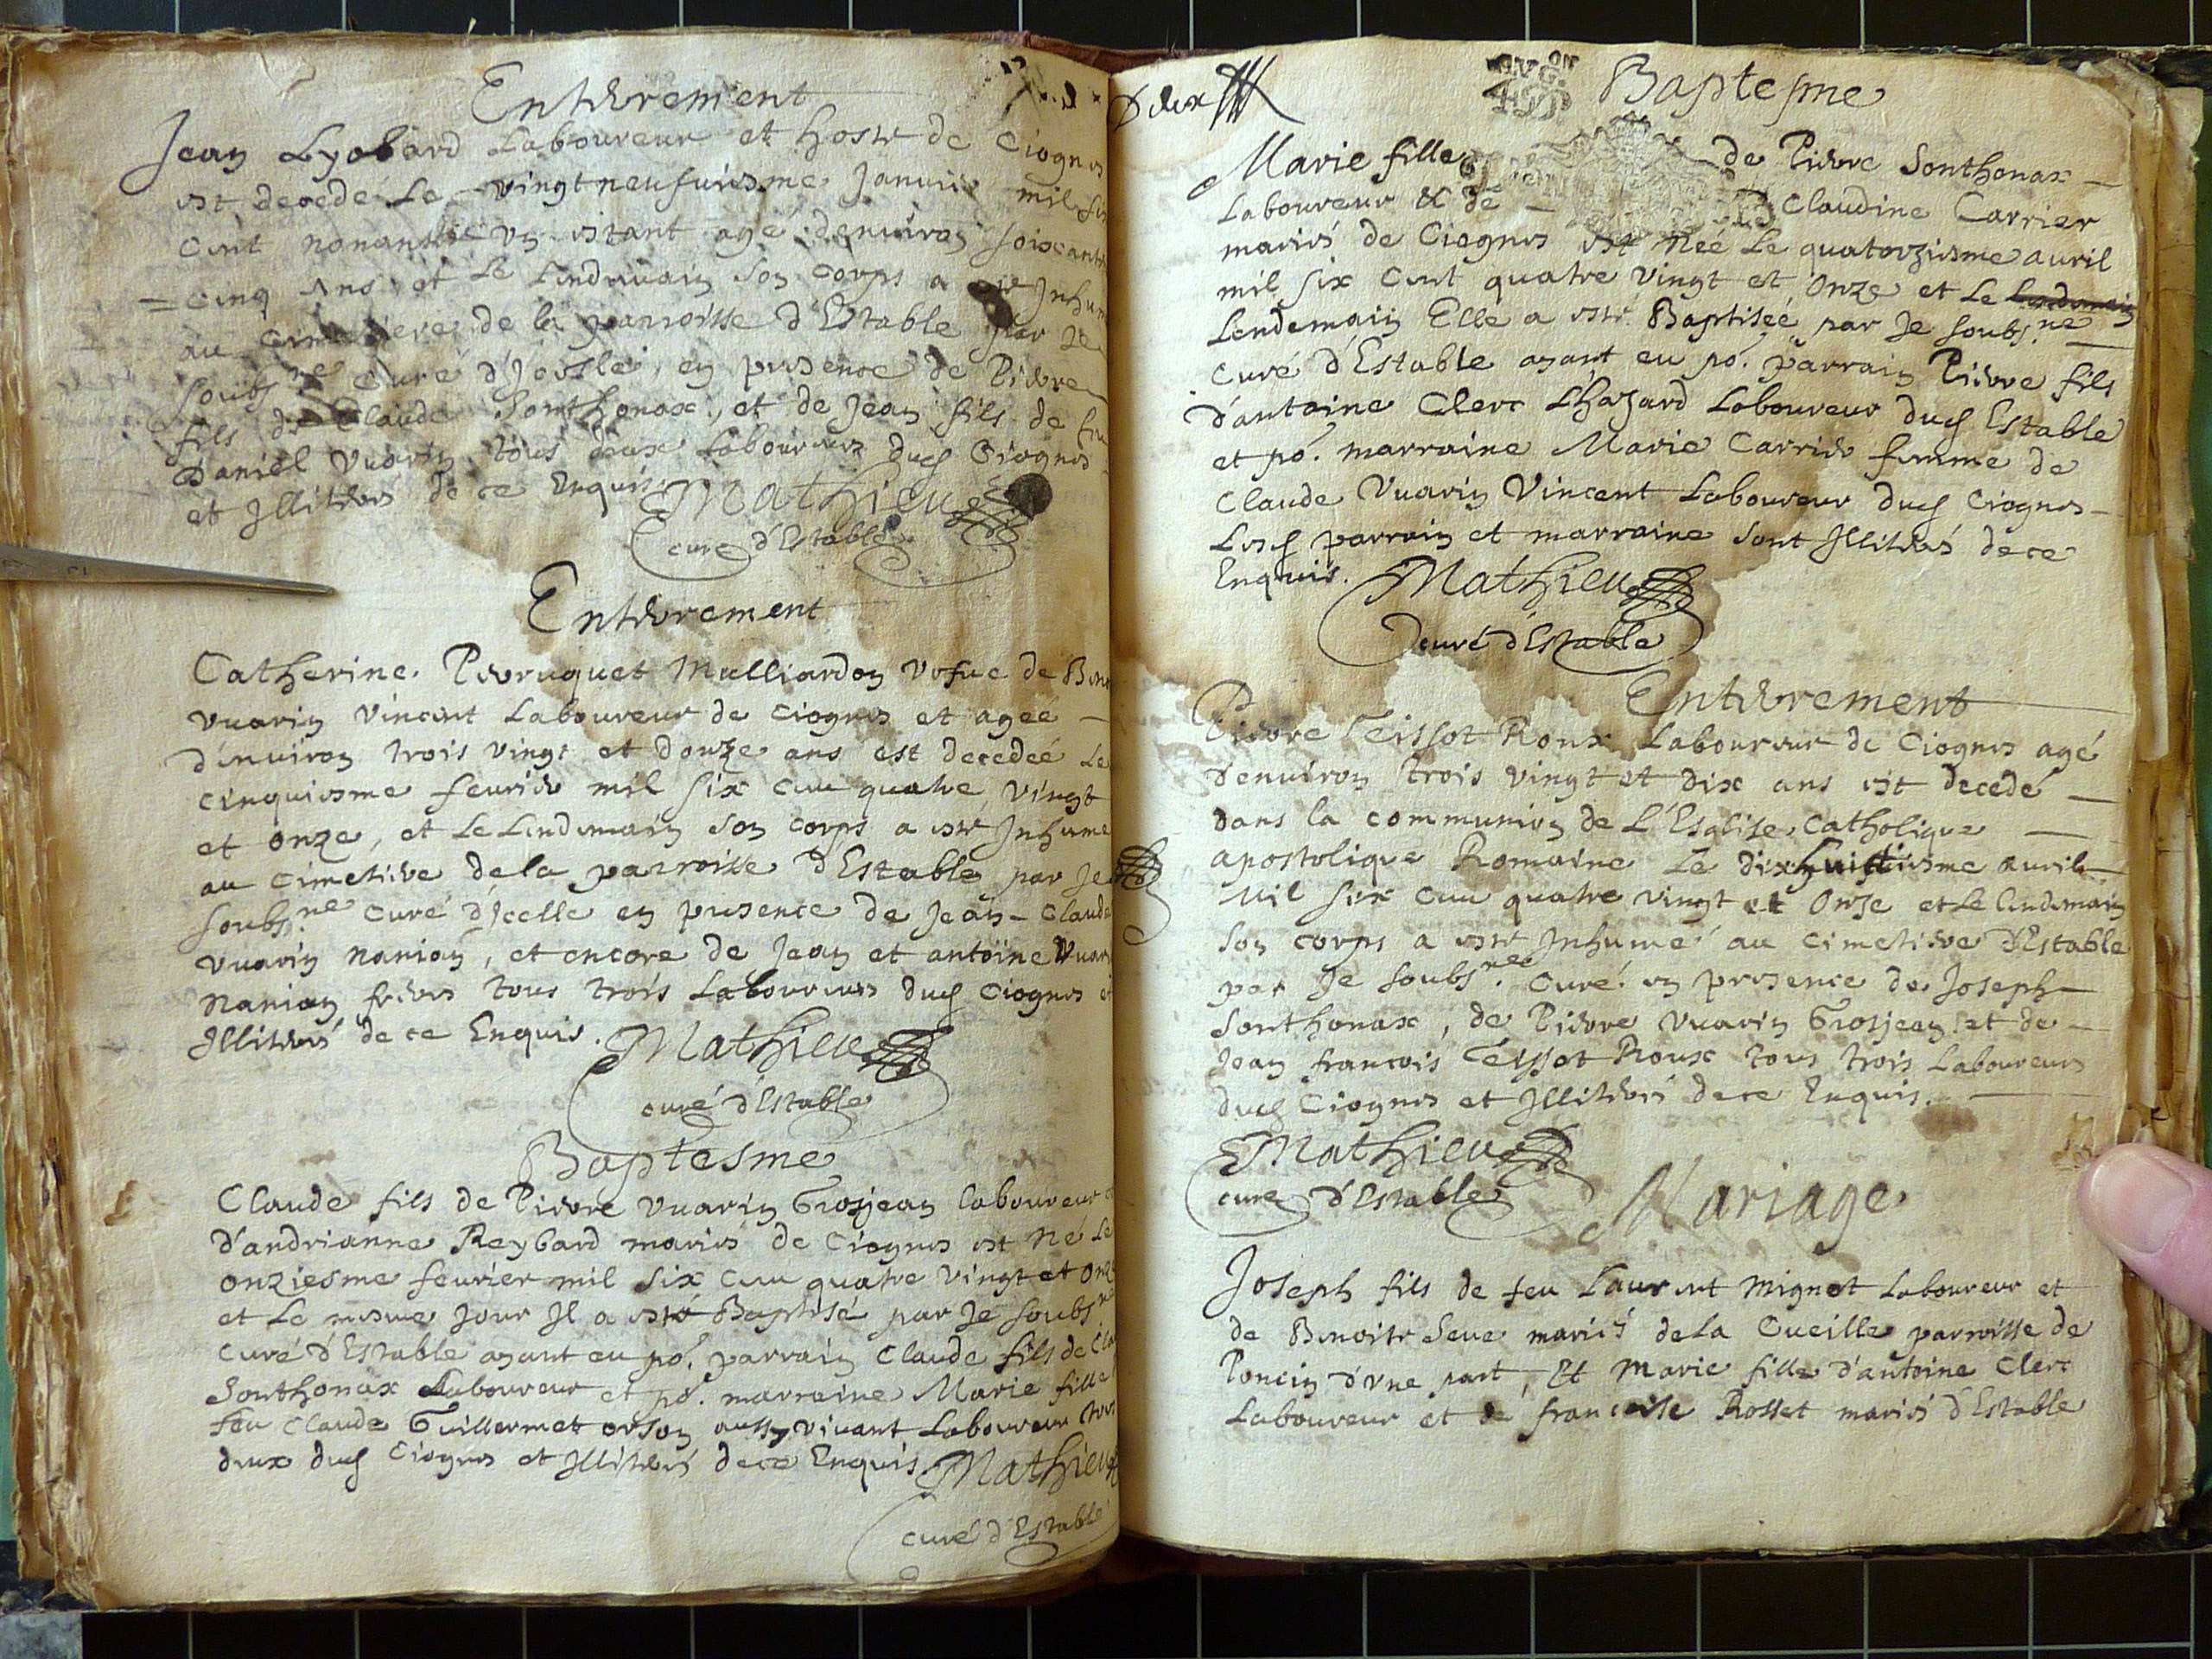 Enterrement
Jean Lyobard Laboureur et hoste de Ciognes
est decedé Le vingt neufuiesme Januier mil six
cent nonante vn estant agé denuiron soixante
= cinq ans et Le Lendemain son corps a esté Inhumé
au Cimetiere de la parroisse d'Estable par Je
soubs.ne Curé d'Jcelle, en presence de Pierre
fils de Claude Sonthonax, et de Jean fils de feu
Daniel Vuarin tous deux Laboureurs dud Ciognes
et Jlliterés de ce Enquis Mathieu
curé d'Estable
Enterrement
Catherine Perruquet Mulliardon vefue de Benoit
Vuarin Vincent Laboureur de Ciognes et ageé
d'enuiron trois vingt et douze ans est decedeé Le
cinquiesme feurier mil six cens quatre vingt
et onze, et Le Lendemain son corps a esté Inhume
au Cimetiere de la parroisse d'Estable par Je
soubs.ne Curé d'Jcelle en presence de Jean-Claude
Vuarin Nanian, et encore de Jean et antoine Vuarin
Nanian freres tous trois Laboureurs dud Ciognes et
Jlliterés de ce Enquis. Mathieu
curé d'Estable
Baptesme
Claude fils de Pierre Vuarin Grosjean laboureur et
d'andrianne Reybard mariés de Ciognes est Né Le
onziesme feurier mil six cens quatre vingt et onze
et Le mesme Jour Jl a esté Baptisé par Je soubs.ne
Curé d'Estable ayant eu po.r parrain Claude fils de Claude
Sonthonax Laboureur et po.r marraine Marie fille de
feu Claude Guillermet orson aussy viuant Laboureur tous
deux dud Ciognes et Jlliterés de ce Enquis Mathieu
curé d'Estable
deux
Baptesme
Marie fille de Pierre Sonthonax
Laboureur & de Claudine Carrier
mariés de Ciognes est Neé Le quatorziesme auril
mil six cent quatre vingt et onze et Le Lendemain
Lendemain Elle a esté Baptiseé par Je soubs.ne
Curé d'Estable ayant eu po.r parrain Pierre fils
d'antoine Clerc Lhazard Laboureur dud Estable
et po.r marraine Marie Carrier femme de
Claude Vuarin Vincent Laboureur dud Ciognes
Lesd parrain et marraine sont Jlliterés de ce
Enquis. Mathieu
curé d'Estable
Enterrement
Pierre Teissot Roux Laboureur de Ciognes agé
d'enuiron trois vingt et dix ans est decedé
dans la communion de L'Esglise Catholique
apostolique Romaine Le dixhuictiesme auril
Mil six cens quatre vingt et Onze et Le lendemain
son corps a esté Inhumé au Cimetiere d'Estable
par Je soubs.né Curé en presence de Joseph
Sonthonax, de Pierre Vuarin Grosjean et de
Jean francois Teissot Roux tous trois Laboureurs
dud Ciognes et Jllitérés de ce Enquis.
Mathieu
curé d'Estable
Mariage
Joseph fils de feu Laurent Mignot Laboureur et
de Benoite Seue mariés de La Cueille parroisse de
Poncin d'vne part, Et Marie fille d'antoine Clerc
Laboureur et de francoise Rosset mariés d'Estable